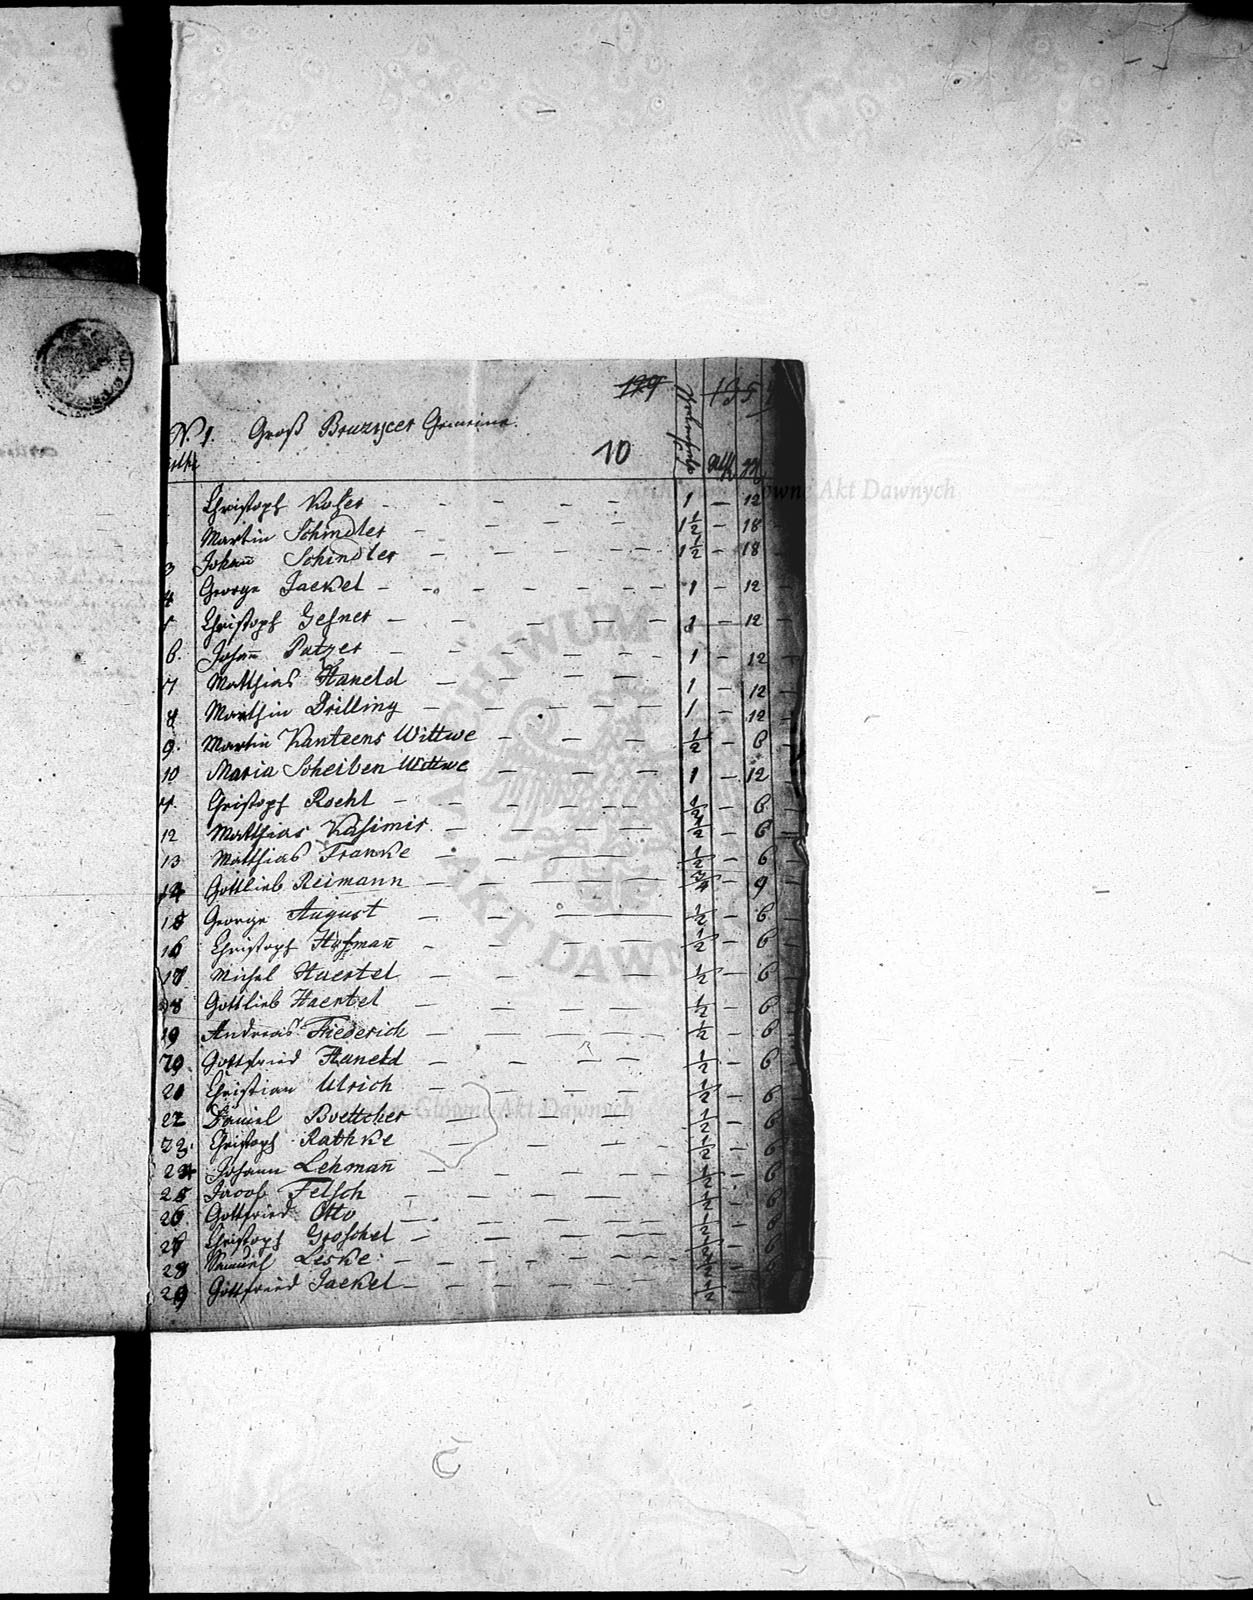 129 135
N. 1. Groß Bruzycer Gemeine.
10
Christoph Koser - - - - 1 - 12
Martin Schindler - - - - 1½ - 18
3 Johañ Schindler - - - - 1½ - 18
4 George Jaekel - - - - - - - 1 - 12 -
5 Christoph Gesner - - - - - 1 - 12 -
6. Johañ Patzer - - - - - 1 - 12 -
7 Matthias Haneld - - - - - 1 - 12 -
8 Marthin Drilling - - - - - - 1 - 12 -
9. Martin Kanteens Wittwe - - - - ½ - 6 -
10 Maria Scheiben Wittwe - - - - 1 - 12 -
11. Christoph Roehl - - - - - ½ - 6 -
12 Matthias Kasimir - - - - - ½ - 6 -
13 Matthias Franke - - - - ½ - 6 -
14 Gottlieb Reimann - - - - ¾ - 9 -
15 George August - - - - ½ - 6 -
16 Christoph Hofmañ - - - - ½ - 6 -
17 Michel Haertel - - - - ½ - 6 -
18 Gottlieb Haertel - - - - ½ - 6 -
19 Andreas Friederich - - - - ½ - 6 -
20 Gottfried Haneld - - - - - ½ - 6 -
21 Christian Ulrich - - - - - ½ - 6 -
22 Daniel Boettcher - - - - - ½ - 6 -
23. Christoph Rathke - - - - ½ - 6 -
24 Johann Lehmañ - - - - - ½ - 6 -
25 Jacob Felsch - - - - - ½ - 6 -
26 Gottfried Otto - - - - - ½ - 6
27 Christoph Groschel - - - - - ½ - 6
28 Samuel Leske - - - - - - ½ -
29 Gottfried Jaekel - - - - - ½
Archiwum Główne Akt Dawnych
ARCHIWUM GŁÓWNE AKT DAWNYCH
Archiwum Główne Akt Dawnych